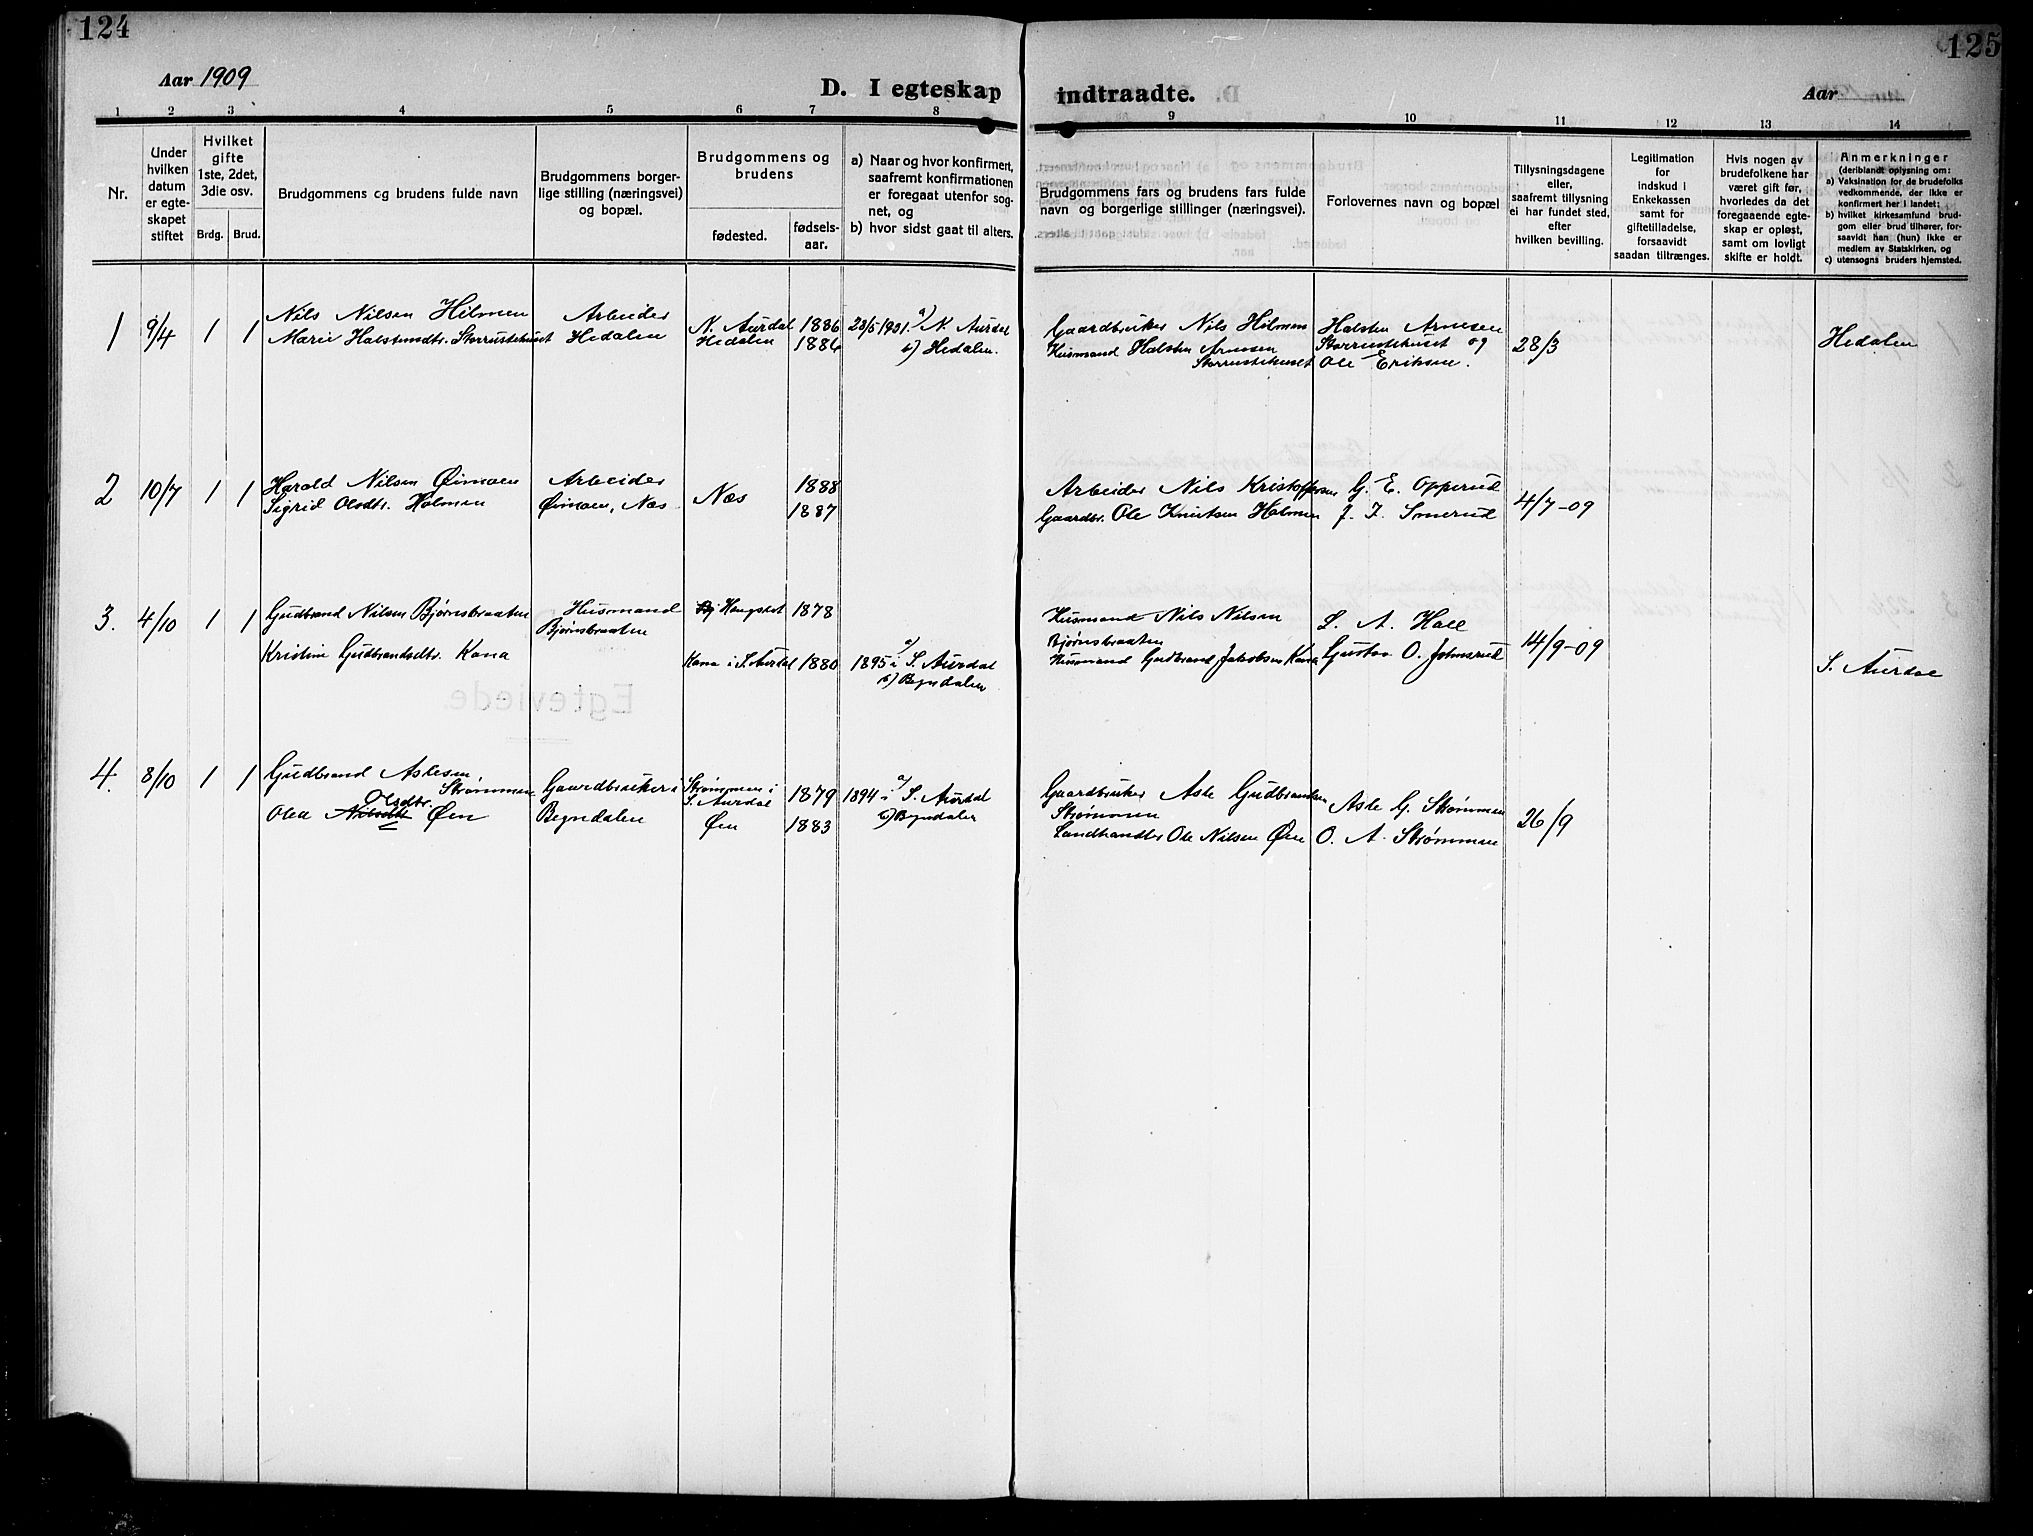 124
125
Aar 1909
D. I egteskap
indtraadte.
Aar
1 2 3 4 5 6 7 8
9 10 11 12 13 14
Nr.
Under hvilken datum er egteskapet stiftet
Hvilket gifte 1ste, 2det, 3die osv.
Brdg. Brud.
Brudgommens og brudens fulde navn
Brudgommens borgerlige stilling (næringsvei) og bopæl.
Brudgommens og brudens
fødested.
fødselsaar.
a) Naar og hvor konfirmert, saafremt konfirmationen er foregaat utenfor sognet, og
b) hvor sidst gaat til alters.
Brudgommens fars og brudens fars fulde navn og borgerlige stillinger (næringsvei).
Forlovernes navn og bopæl
Tillysningsdagene eller, saafremt tillysning ei har fundet sted, efter hvilken bevilling.
Legitimation for indskud i Enkekassen samt for giftetilladelse, forsaavidt saadan tiltrænges.
Hvis nogen av brudefolkene har været gift før, hvorledes da det foregaaende egteskap er opløst, samt om lovligt skifte er holdt.
Anmerkninger (deriblandt oplysning om:
a) Vaksination for de brudefolks vedkommende, der ikke er konfirmert her i landet;
b) hvilket kirkesamfund brudgom eller brud tilhører, forsaavidt han (hun) ikke er medlem av Statskirken, og
c) utensogns bruders hjemsted.
1 9/4 1 1 Nils Nilsen Hilmen Arbeider N. Aurdal 1886 28/5 1901. a) N. Aurdal
Marie Halstensdtr. Storrustehuset Hedalen Hedalen 1886 b) Hedalen.
Gaardbruker Nils Hilmen Halsten Arnesen
Husmand Halsten Arnesen Storrustehuset og 28/3 Hedalen
Storrustehuset Ole Eriksen.
2 10/7 1 1 Harald Nilsen Øimoen Arbeider Næs 1888
Sigrid Olsdtr. Holmen Øimoen, Næs 1887
Arbeider Nils Kristoffersen G. E. Opperud 4/7-09
Gaardbr. Ole Knutsen Holmen J. I. Smerud
3. 4/10 1 1 Gudbrand Nilsen Bjørnbraaten Husmand 1878
Bjørnbraaten
Kristine Gudbrandsdtr. Kana Kana i S. Aurdal 1880 1895 a) i S. Aurdal
b) Begndalen
Husmand Nils Nilsen L. A. Hall
Bjørnbraaten
Husmand Gudbrand Jakobsen Kana Gustav O. Johnsrud 14/9-09
S. Aurdal
4. 8/10 1 1 Gudbrand Aslesen
Strømmen Gaardbruker i Strømmen i S. Aurdal 1879 1894 a) i S. Aurdal
Olea Olsdtr. Øen Begndalen Øen 1883 b) Begndalen
Gaardbruker Asle Gudbrandsen Asle G. Strømmen
Strømmen 26/9
Landhandler Ole Nilsen Øen O. A. Strømmen